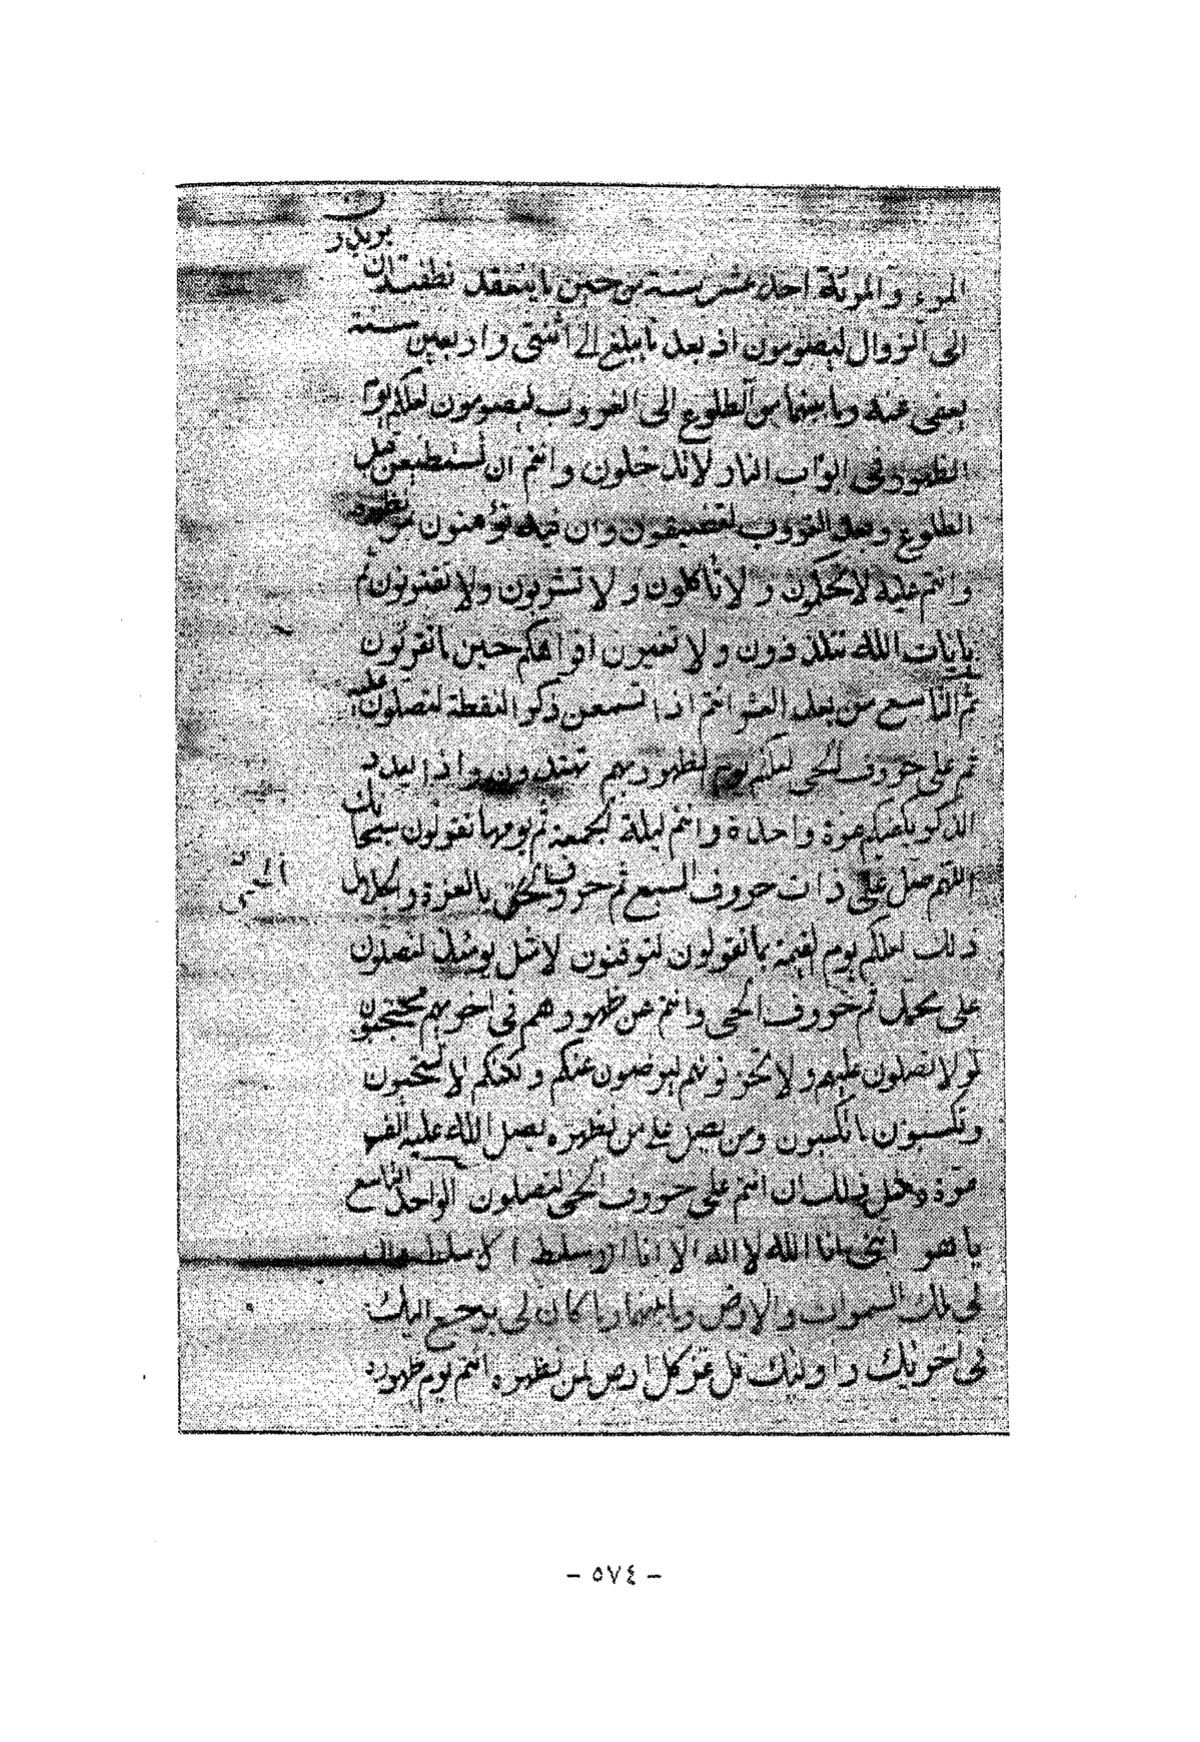 المرء والمرئة احد عشر سنة من حين ما ينعقد نطفته ان
يريدن
الى الزوال ليصومون اذ بعد ما يبلغ الى اثنتى واربعين سنة
يعفى عنه وما بينهما من الطلوع الى الغروب ليصومون لعلكم يوم
الظهور فى ابواب النار لا تدخلون وانتم ان تستطيعن قبل
الطلوع وبعد الغروب لتضيفون وان فيه تؤمنون بمن نظهره
وانتم عليه لا تحكمون ولا تأكلون ولا تشربون ولا تقترنون ثم
بايات الله تتلذذون ولا تغيرون افواهكم حين ما تقرئون
ثم التاسع من بعد العشر انتم اذا تسمعن ذكر النقطة لتصلون عليه
ثم على حروف الحى لعلكم يوم لظهورهم تهتدون واذا يبدد
الذكر يكفيكم مرة واحدة وانتم ليلة الجمعة ثم يومها تقولون سبحانك
اللهم صل على ذات حروف السبع ثم حروف الحى بالعزة والجلال
الحى
ذلك لعلكم يوم القيمة بما تقولون لتوقنون لا مثل يومئذ لتصلون
على محمد ثم حروف الحى وانتم عن ظهورهم فى اخريهم محتجبون
لو لا تصلون عليهم ولا تحزنونهم ليرضون عنكم ولكنكم لا تستحيون
وتكسبون ما تكسبون ومن يصل على من نظهره يصل الله عليه الف
مرة ومثل ذلك ان انتم على حروف الحى لتصلون الواحد التاسع
يا هو اننى انا الله لا اله الا انا الاسلط الاسلط
لى ملك السموات والارض وما بينهما وما كان لى يرجع اليك
فى اخريك و اوليك قل عز كل ارض لمن نظهره انتم يوم ظهوره
- ٥٧٤ -